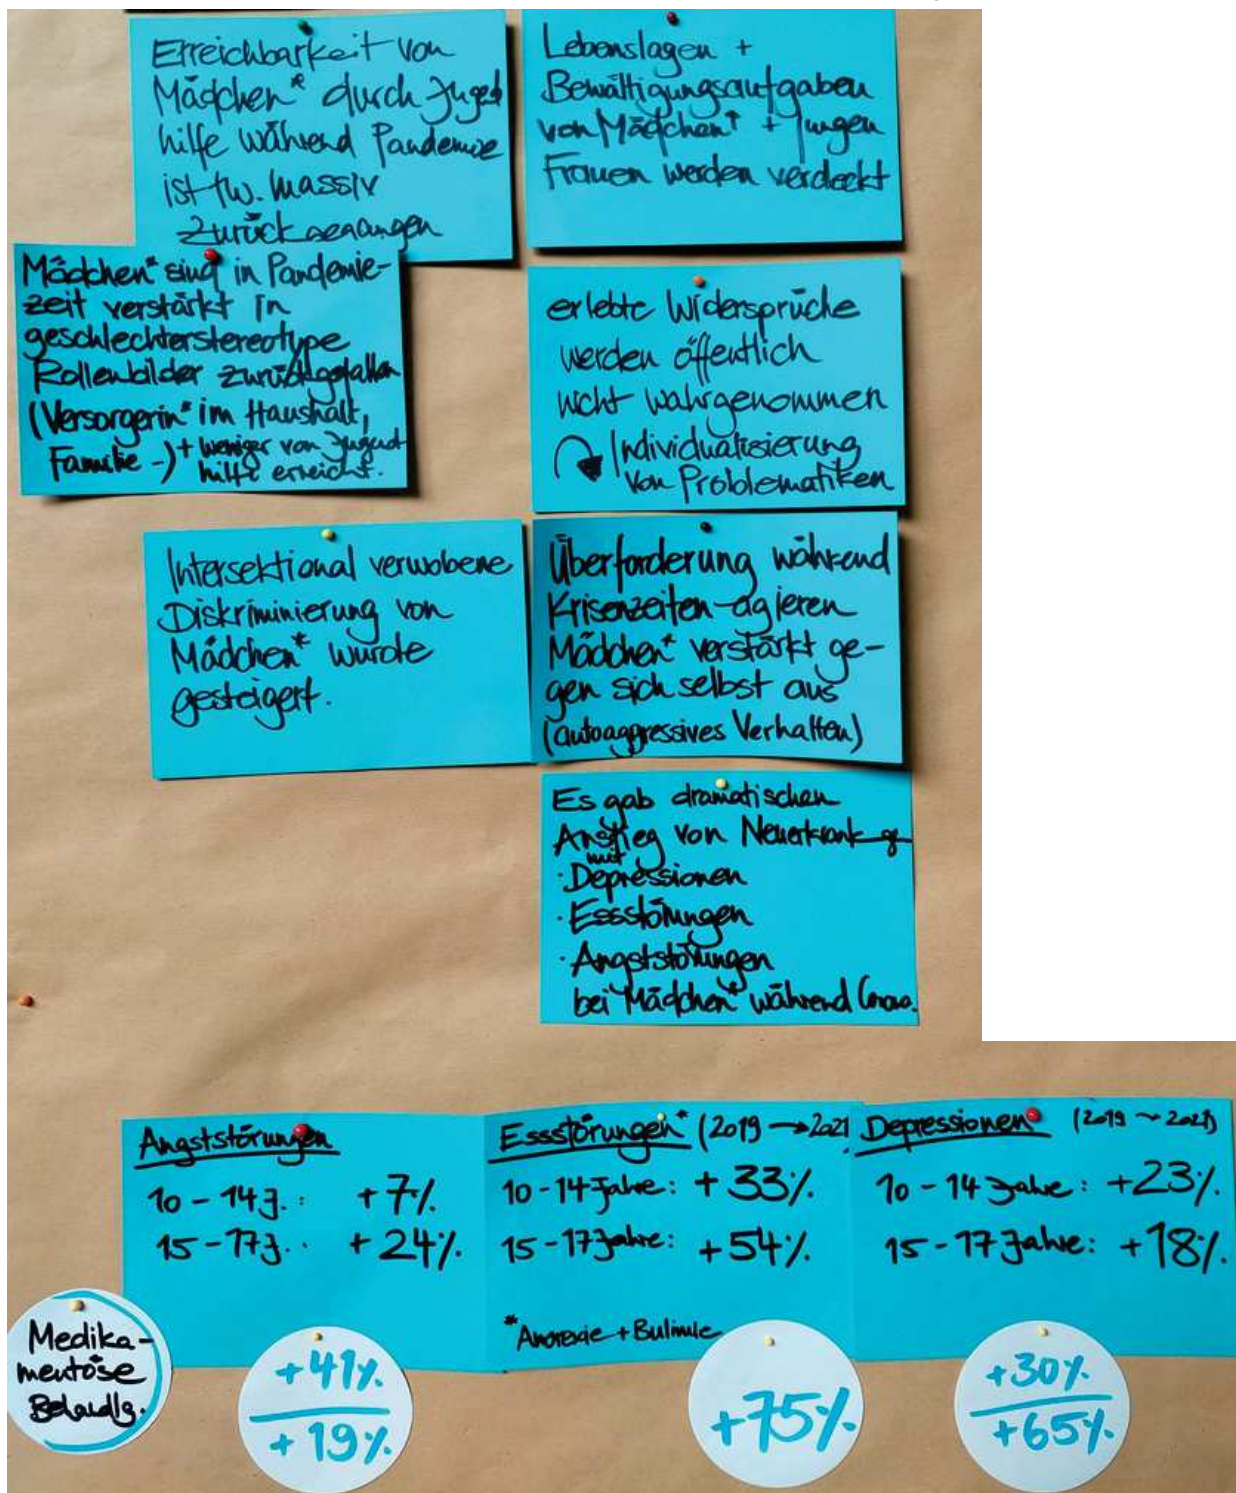 Erreichbarkeit von
Mädchen* durch Jugend
hilfe während Pandemie
ist tw. massiv
zurückgegangen
Lebenslagen +
Bewältigungsaufgaben
von Mädchen* + jungen
Frauen werden verdeckt
Mädchen* sind in Pandemie-
zeit verstärkt in
geschlechterstereotype
Rollenbilder zurückgefallen
(Versorgerin* im Haushalt,
Familie -) + weniger von Jugend-
hilfe erreicht.
erlebte Widersprüche
werden öffentlich
nicht wahrgenommen
Individualisierung
von Problematiken
Intersektional verwobene
Diskriminierung von
Mädchen* wurde
gesteigert.
Überforderung während
Krisenzeiten agieren
Mädchen* verstärkt ge-
gen sich selbst aus
(autoaggressives Verhalten)
Es gab dramatischen
Anstieg von Neuerkrank-g
mit
· Depressionen
· Essstörungen
· Angststörungen
bei Mädchen* während Corona.
Angststörungen
10 - 14 J.: +7%
15 - 17 J.: +24%
Essstörungen* (2019 → 2021
10 - 14 Jahre: + 33%
15 - 17 Jahre: +54%
*Anorexie + Bulimie
Depressionen (2019 → 2021)
10 - 14 Jahre: +23%
15 - 17 Jahre: +18%
Medika-
mentöse
Behandlg.
+41%
+19%
+75%
+30%
+65%